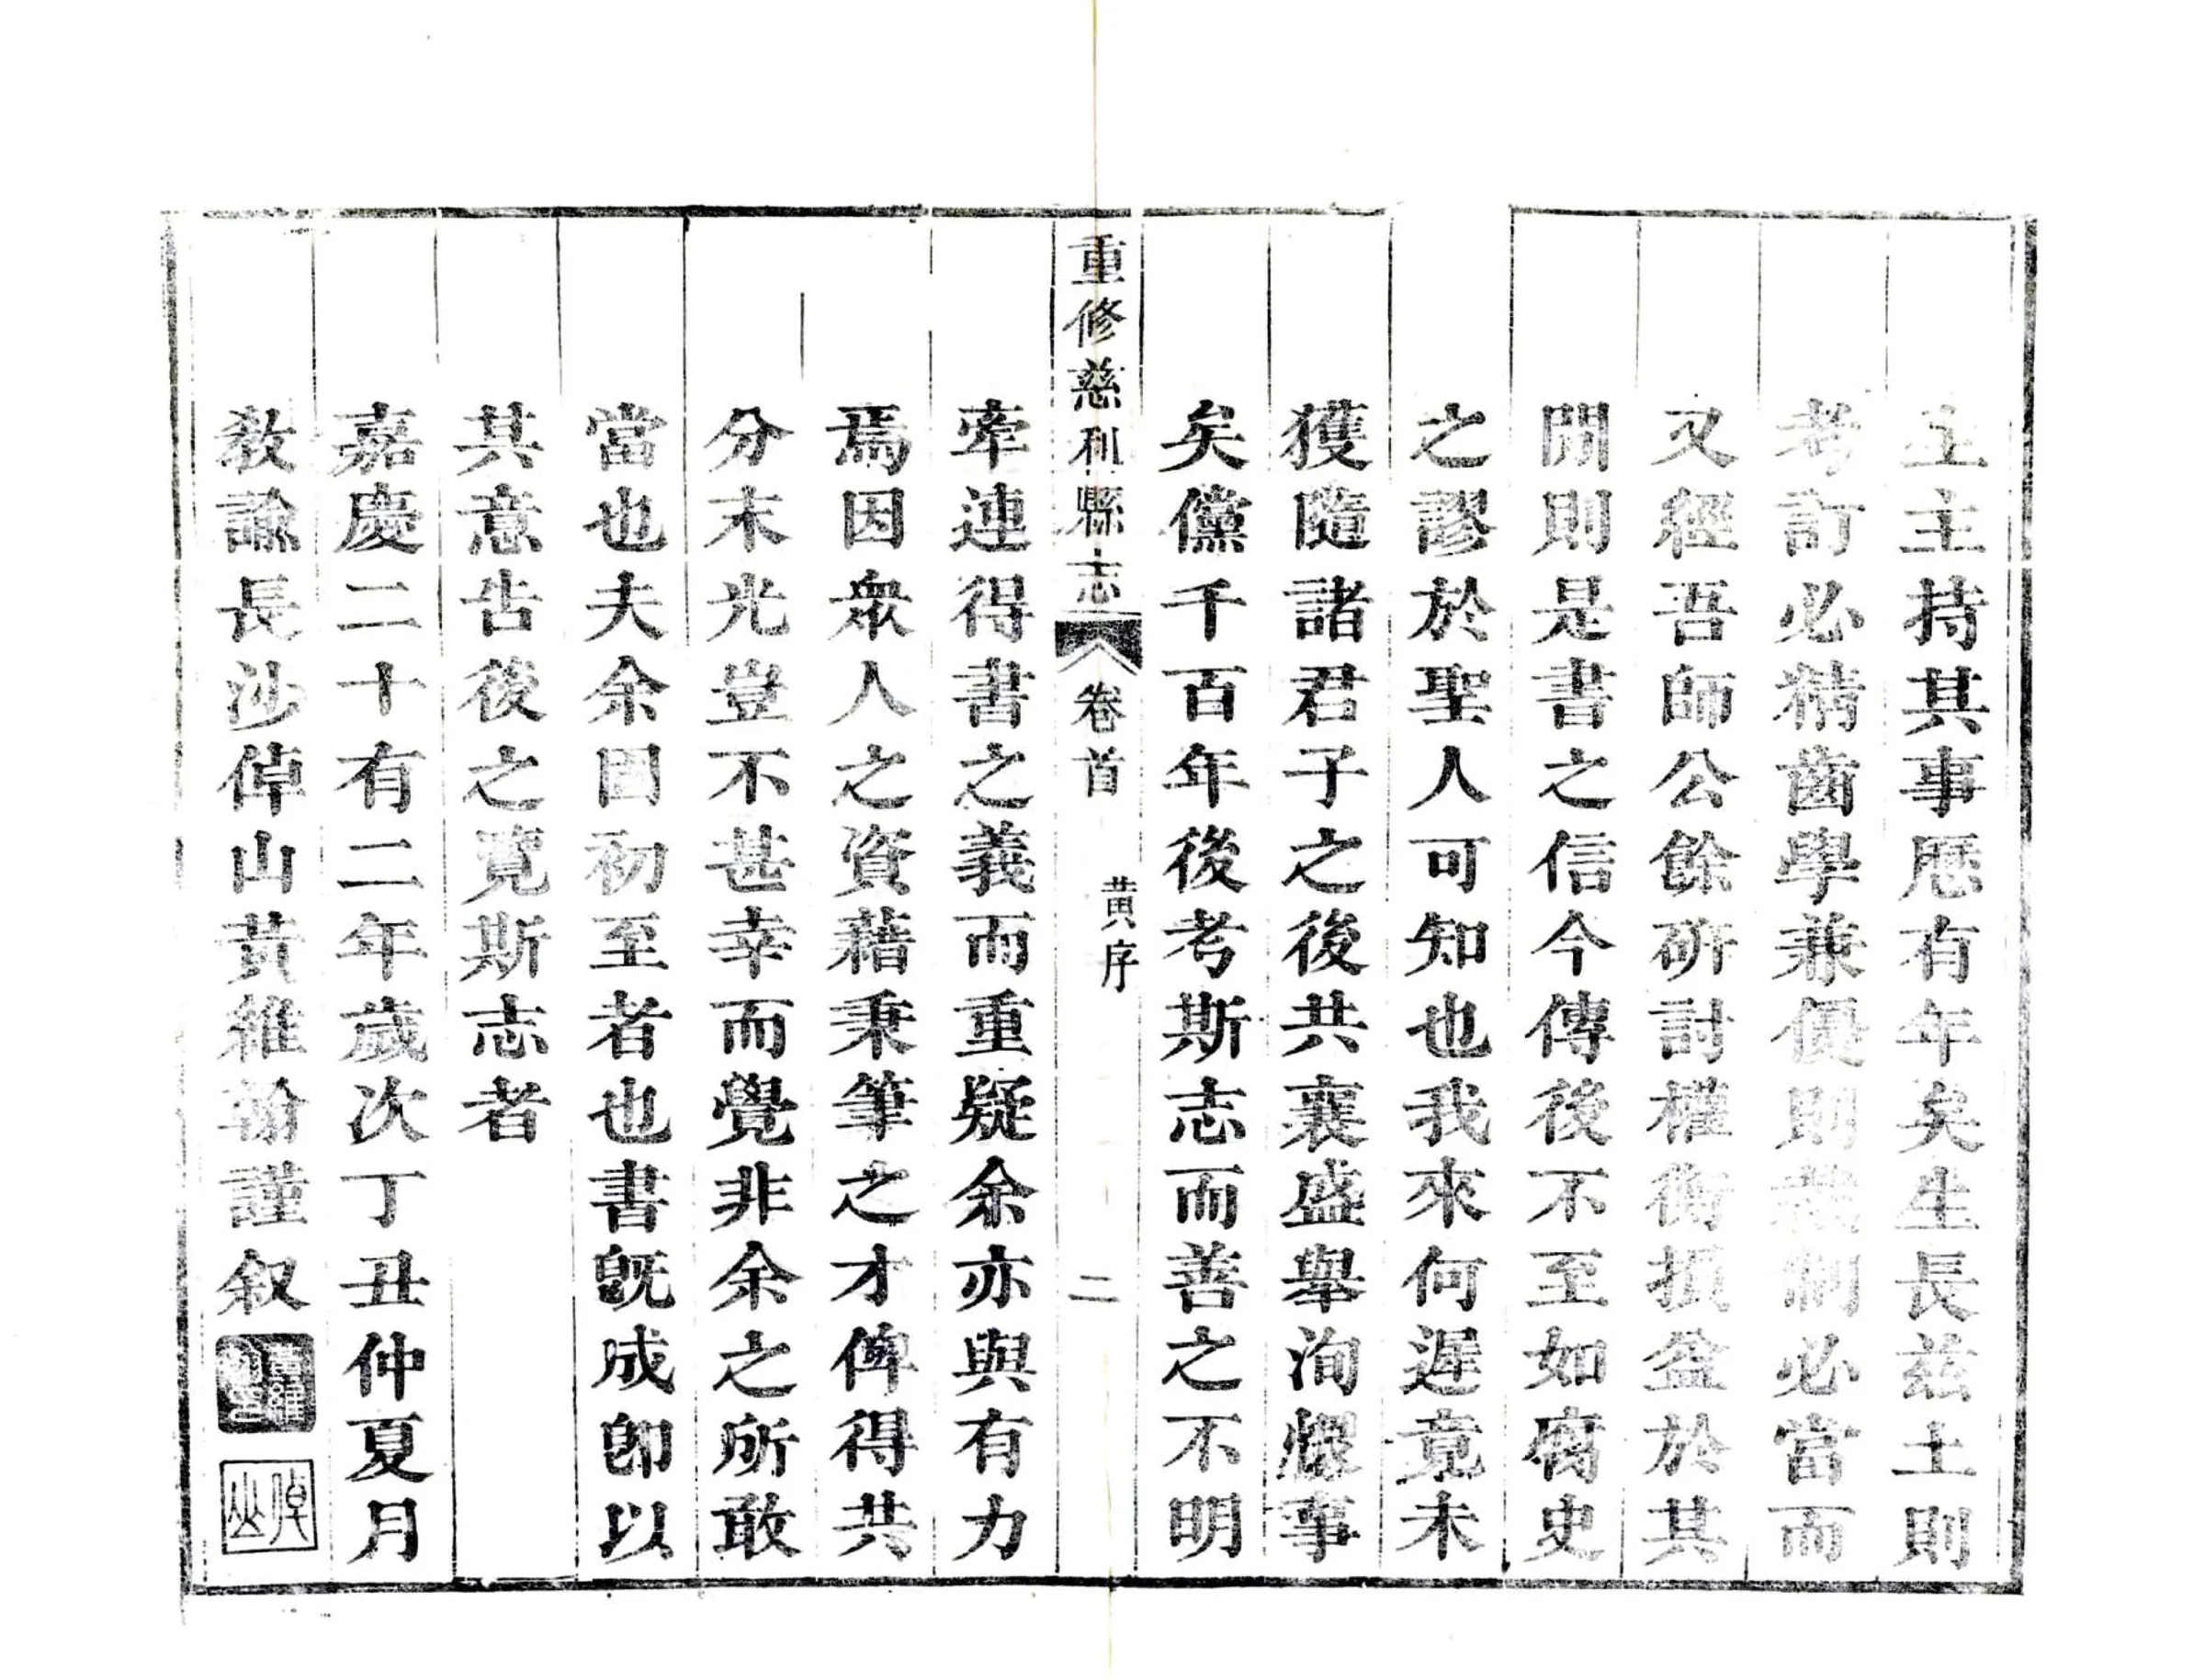 主主持其事歷有年矣生長茲土則
考訂必精齒學兼優則裁制必當而
又經吾師公餘硏討權衡損益於其
間則是書之信今傳後不至如腐史
之謬於聖人可知也我來何遲竟未
獲隨諸君子之後共襄盛舉洵慇事
矣儻千百年後考斯志而善之不明
重修慈利縣志
卷首
黃序
二
牽連得書之義而重疑余亦與有力
焉因衆人之資藉秉筆之才俾得共
分末光豈不甚幸而覺非余之所敢
當也夫余固初至者也書旣成卽以
其意告後之覽斯志者
嘉慶二十有二年歲次丁丑仲夏月
敎諭長沙倬山黃維翰謹叙
倬山